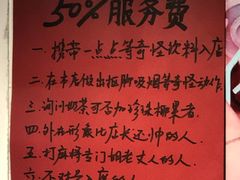 50%服务费
一.携带一点点等奇怪饮料入店
二.在本店做出抠脚吸烟等奇怪动作
三.询问奶茶可否加珍珠椰果者
四.外在形象比店长还帅的人
五.打麻将专门胡老丈人的人